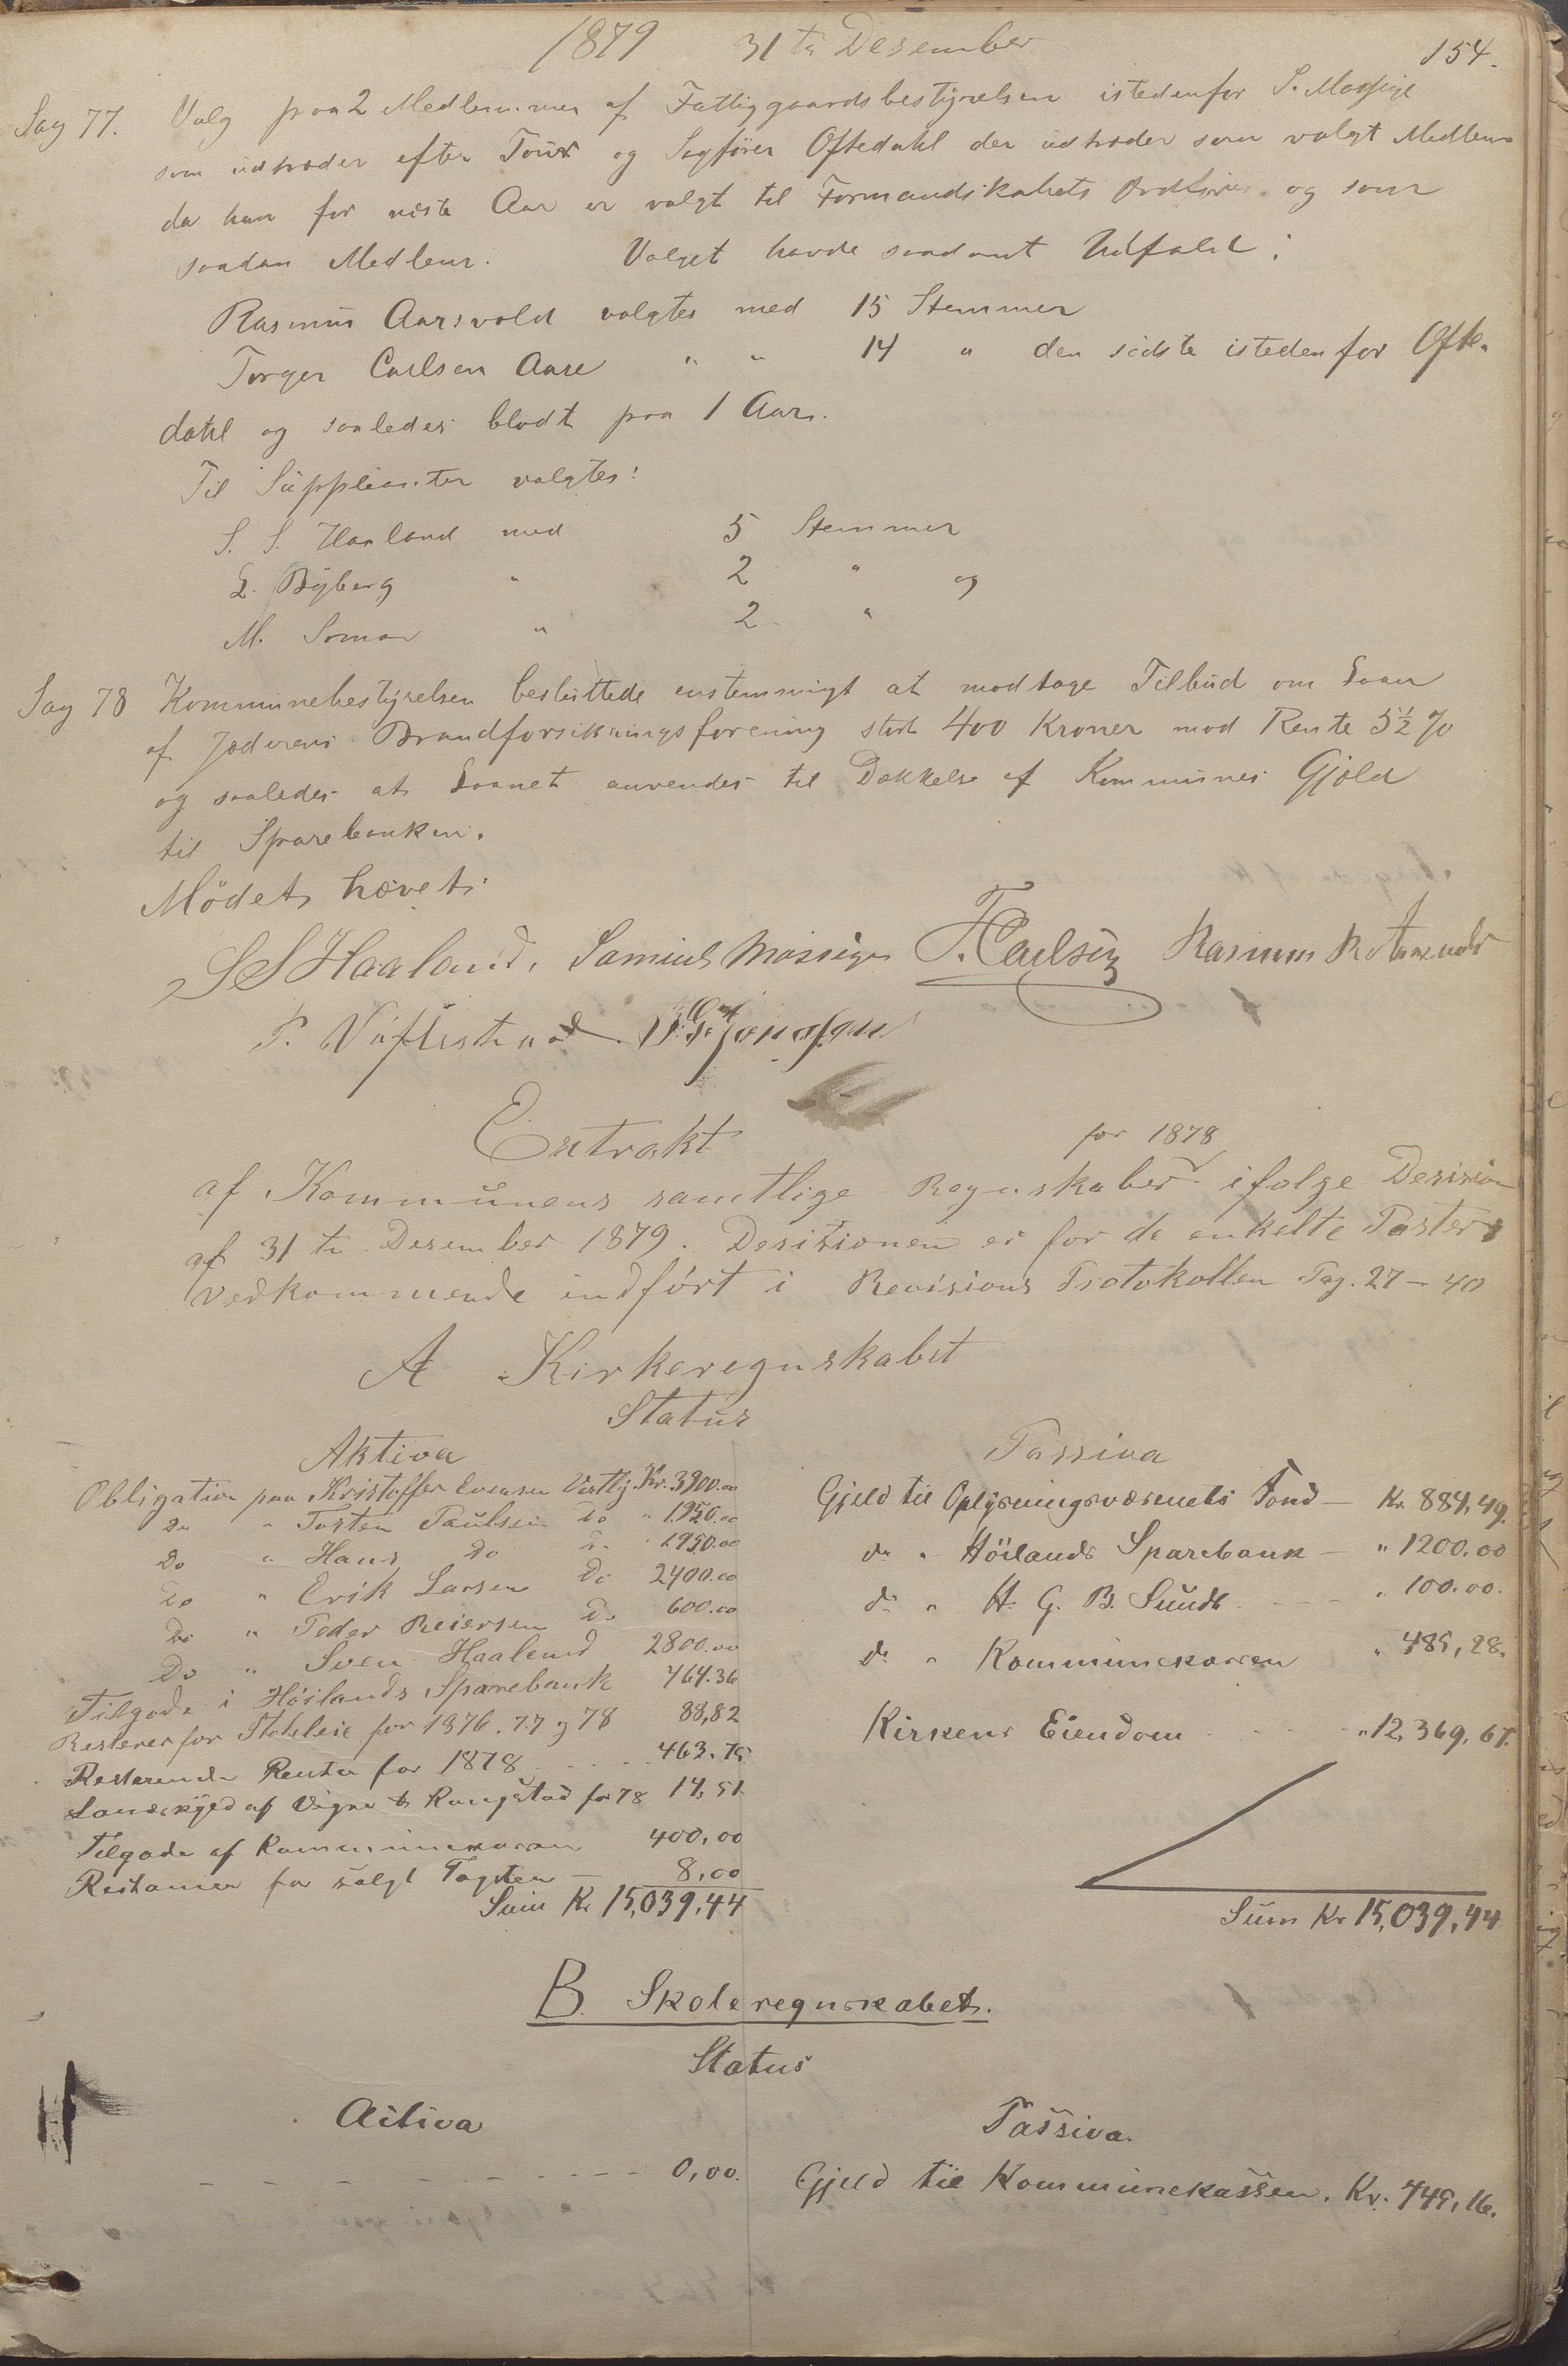 1879 31te Desember 154.
Sag 77. Valg paa 2 Medlemmer af Fattiggaardsbestyrelsen istedenfor S. Mossige
som udtræder efter Tour og Sagfører Oftedahl der udtræder som valgt Medlem
da han for næste Aar er valgt til Formandskabets Ordfører og som
saadan Medlem. Valget havde saadant Udfald:
Rasmus Aarsvold valgtes med 15 Stemmer
Torger Carlsen Aase " " 14 " den sidste istedenfor Ofte-
dahl og saaledes blodt paa 1 Aar.
Til Suppleanter valgtes:
S. S. Haaland med 5 Stemmer
L. Byberg " 2 " og
M. Soma " 2 "
Sag 78 Kommunebestyrelsen besluttede enstemmigt at modtage Tilbud om Laan
af Jæderens Brandforsikringsforening stort 400 Kroner mod Rente 5½ %
og saaledes at Laanet anvendes til Dækkelse af Kommunes Gjæld
til Sparebanken.
Mödet hævet.
S S Haaland, Samuel Mossige T. Carlsen Rasmus
Extrakt
for 1878
af Kommunens samtlige Regnskaber ifølge Desision
af 31te Desember 1879. Desisionen er for de enkelte Poster
vedkommende indført i Revisions Protokollen Pag. 27 - 40
A Kirkeregnskabet
Status
Aktiva Passiva
Obligation paa Kristoffer Evensen Vestly Kr. 3900.00
Do " Torsten Paulsen Do " 1950.00
Do " Hans Do Do " 1950.00
Do " Erik Larsen Do 2400.00
Do " Peder Reiersen Do 600.00
Do " Sven Haaland 2800.00
Tilgode i Höilands Sparebank 464.36
Rester for Stoleleie for 1876. 77 og 78 88,82
Resterende Renter for 1878 463.75
Landskyld af Vigre & Rangstad for 78 14,51
Tilgode af Kommunekassen 400,00
Restancer for solgt Tagsten 8,00
Sum Kr 15,039,44
Gjeld til Oplysningsvæsenets Fond Kr. 884,49.
do " Höilands Sparebank " 1200.00
do " H. G. B. Sundt " 100.00.
do " Kommunekassen " 485,28.
Kirkens Eiendom " 12,369,67.
Sum Kr 15,039,44
B. Skoleregnskabet.
Status
Activa Passiva.
0,00. Gjeld til Kommunekassen. Kr. 445,16.